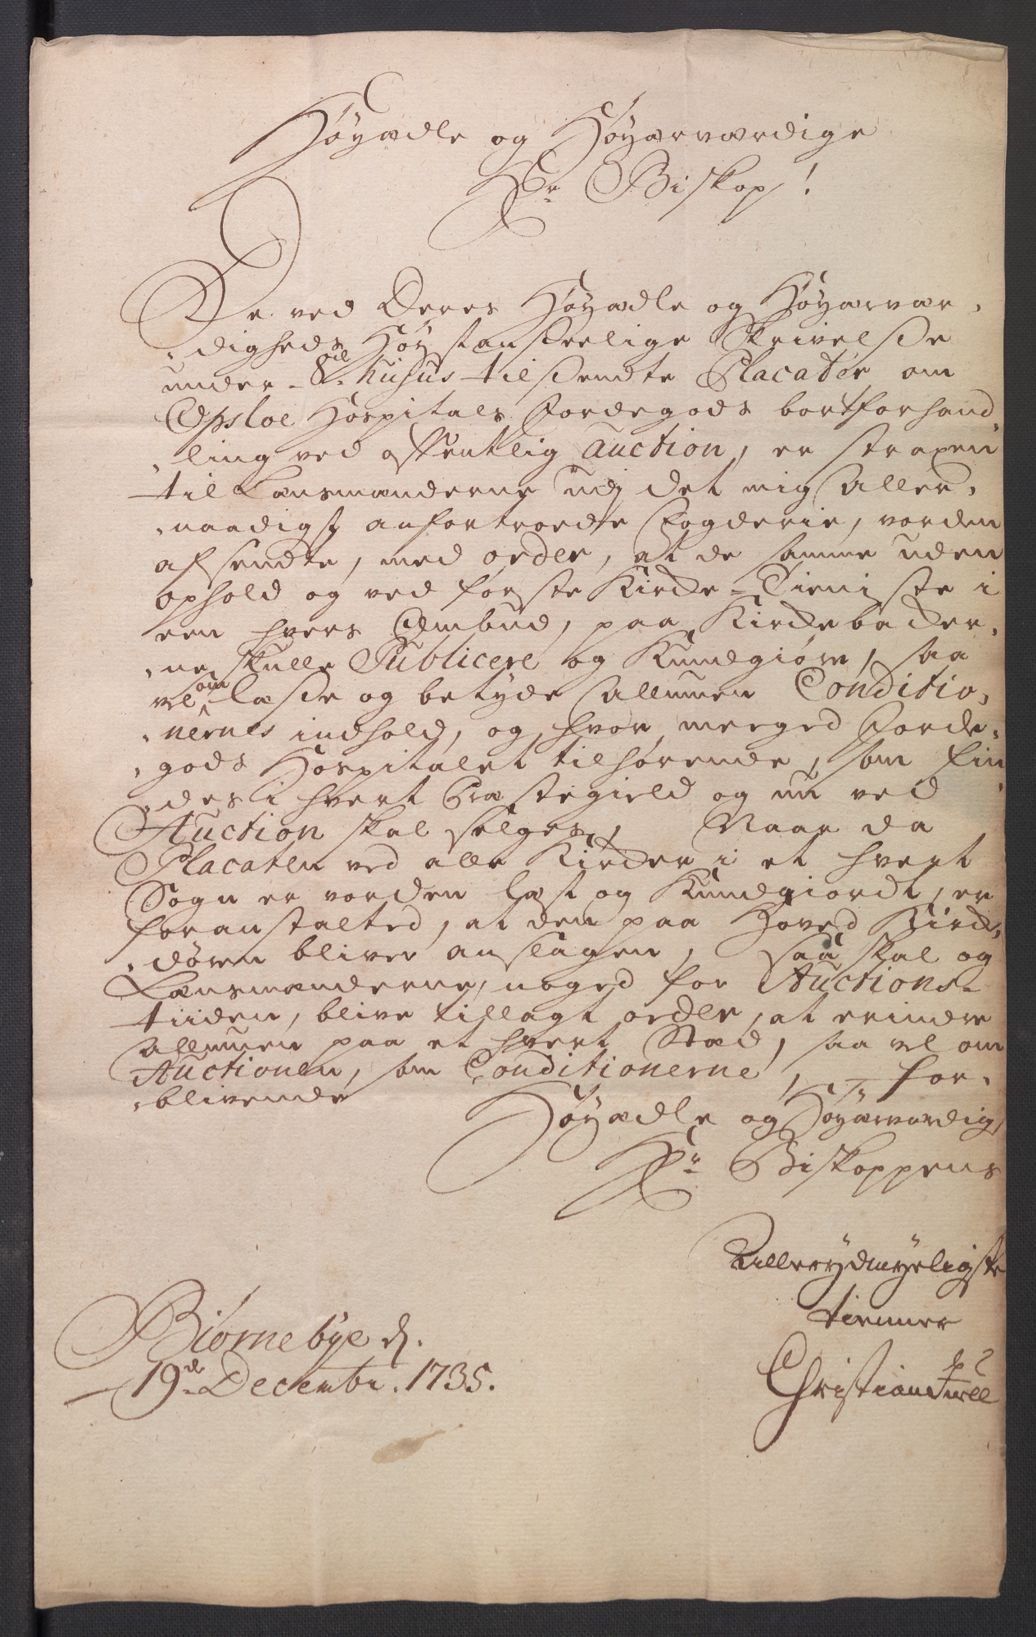 Høyædle og Høyærværdige
Hr. Biskop!
De ved Deres Høyædle og Høyærvær-
digheds Høystanseelige Skrivelse
under 8de hujus tilsendte Placater om
Opsloe Hospitals Jordegods bortforhand-
ling ved offentlig Auction, er straxen
til Lænsmænderne udj det mig Aller-
naadigst anfortroede Fogderie, vorden
afsendte, med order, at de samme uden
ophold og ved første Kirke-Tieniste i
een hvers Ombud, paa Kirkebaker-
ne skulle Publicere og Kundgiøre, saa
vel om læse og betyde Allmuen Conditio-
nernes indhold, og hvor meeged Jorde-
gods Hospitalet tilhørende, som fin-
des i hvert Præstegield og nu ved
Auction skal sælges, Naar da
Placaten ved alle Kirker i et hvert
Sogn er vorden læst og Kundgiordt, er
foranstalted, at den paa Hoved Kirke-
døren bliver anslagen, saa skal og
Lænsmænderne, noged for Auctions-
tiiden, blive tillagt order, at erindre
Allmuen paa et hvert Stæd, saa vel om
Auctionen, som Conditionerne, for-
blivende
Høyædle og Høyærværdige
Hr. Biskoppens
Allerydmygeligste
tienner
Christian
Biørnebye d.
19de Decembr. 1735.